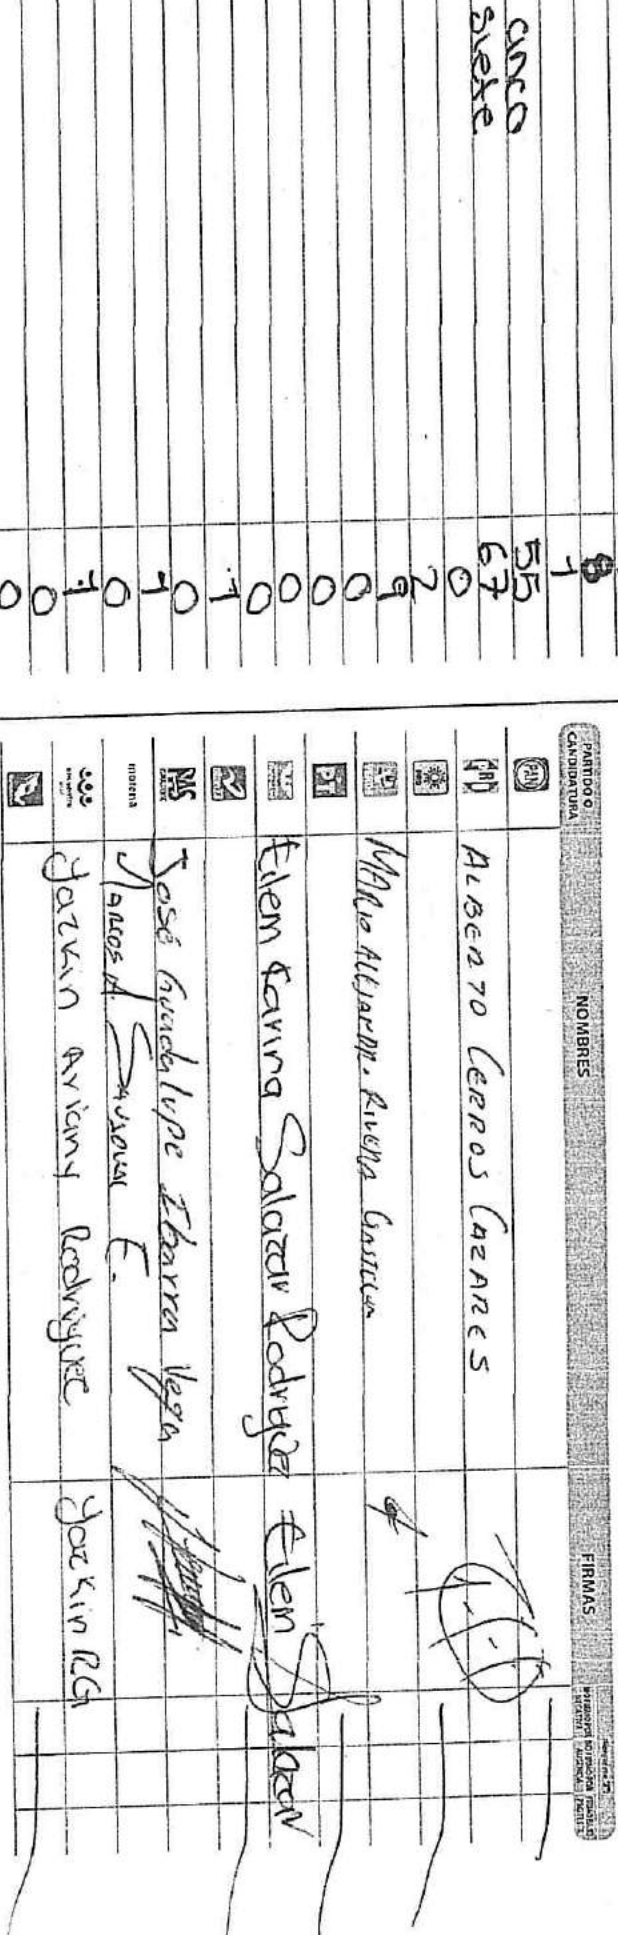 8
1
cinco 55
siete 67
0
2
9
0
0
0
0
1
0
1
0
1
0
0
PARTIDO O CANDIDATURA NOMBRES FIRMAS
PAN
PRI ALBERTO CERROS CAZARES
PRD
MARIO ALEJANDR. RIVERA GASTELUM
PT
Eilem Karina Salazar Rodriguez Eilem Salazar
PAS José Guadalupe Ibarra Vega
morena MARCOS A E.
encuentro Yazkin Ariany Rodriguez Yazkin RG